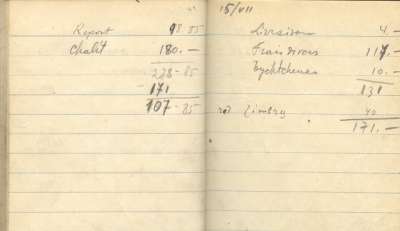 Report 98 85
Chalet 180.—
278-85
171
107-85
15/VII
Livraison 4.—
Frais divers 117.—
10.—
131
40
171.—